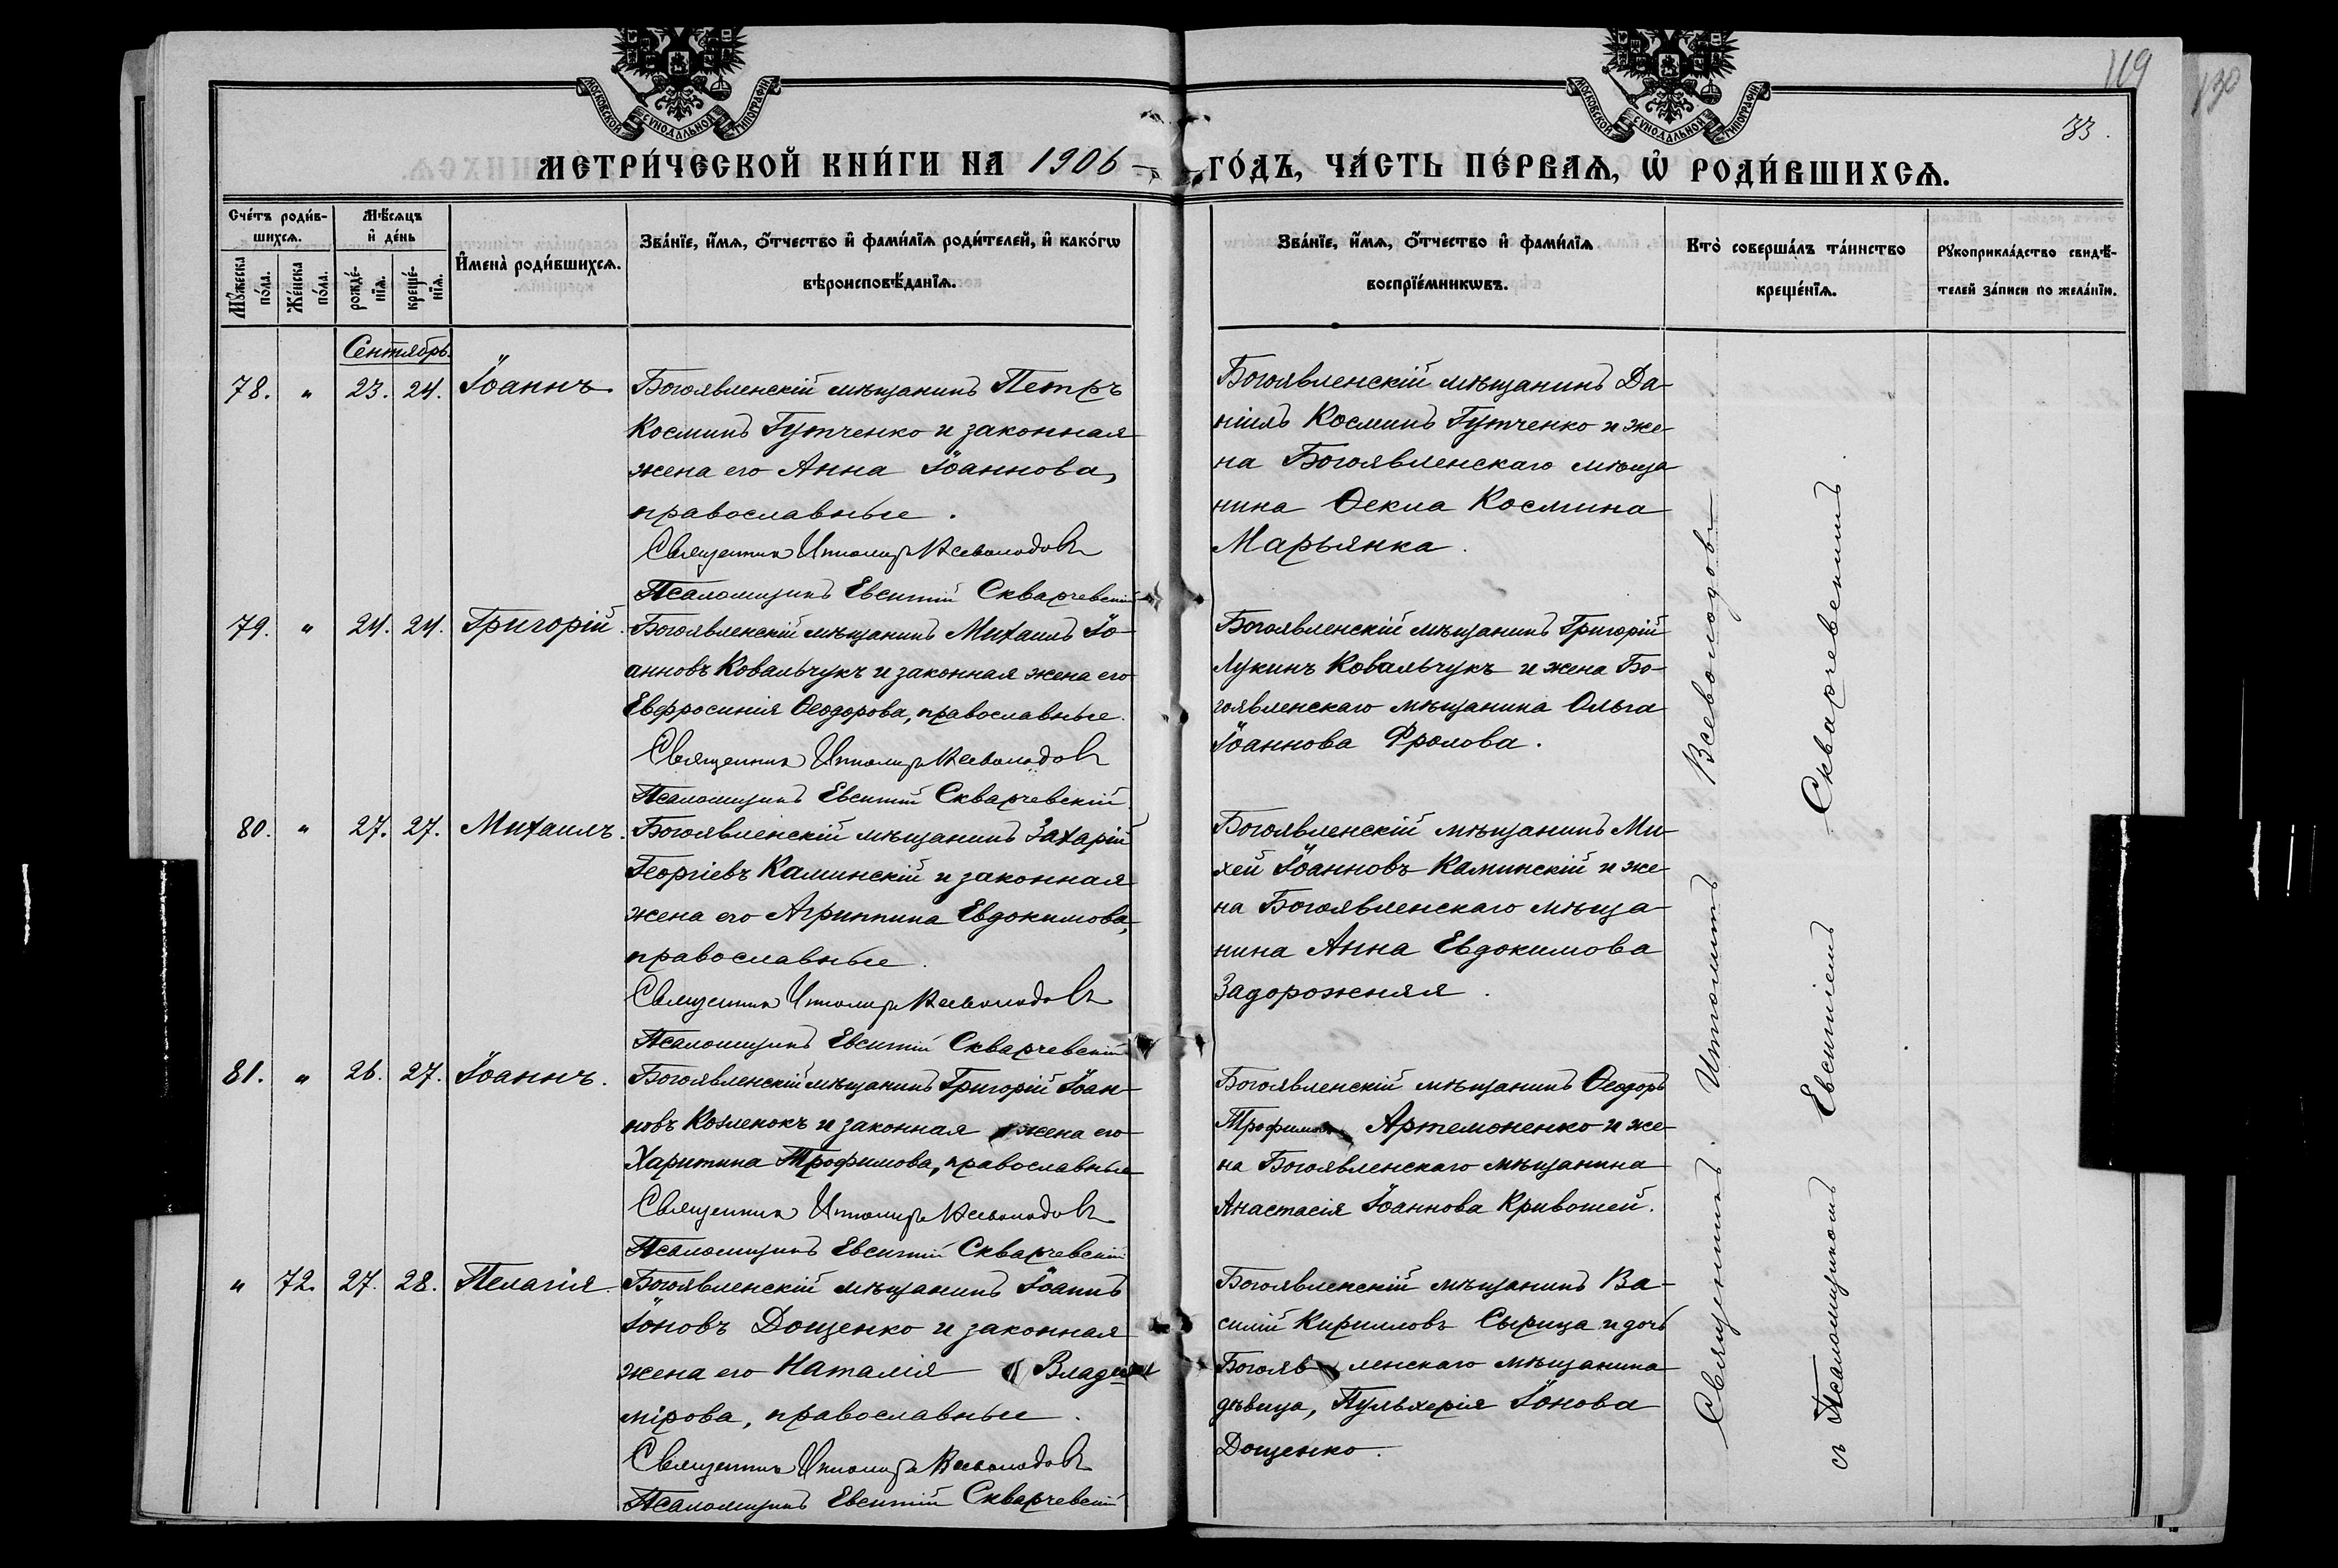 МОСКОВСКОЙ СУНОДАЛЬНОЙ ТИПОГРАФІИ
МОСКОВСКОЙ СУНОДАЛЬНОЙ ТИПОГРАФІИ
119
130
33.
МЕТРИ́ЧЕСКОЙ КНИ́ГИ НА 1906
ГО́ДЪ, ЧА́СТЬ ПЕ́РВАѦ, Ѡ҆ РОДИ́ВШИХСѦ.
Сче́тъ роди́в-
шихсѧ.
Мѣ́сѧцъ
и҆ де́нь
Мꙋ́жеска
по́ла.
Же́нска
по́ла.
рожде́-
нїѧ.
креще́-
нїѧ.
И҆мена̀ роди́вшихсѧ.
Зва́нїе, и҆́мѧ, ѻ҆́тчество и҆ фами́лїѧ роди́телей, и҆ како́гѡ
вѣроисповѣ́данїѧ.
Зва́нїе, и҆́мѧ, ѻ҆́тчество и҆ фами́лїѧ
воспрїе́мникѡвъ.
Кто̀ соверша́лъ та́инство
креще́нїѧ.
Рꙋкоприкла́дство свидѣ́-
телей за́писи по жела́нїю.
Сентябрь.
78. " 23. 24. Іоаннъ.
Богоявленскій мѣщанинъ Петръ
Косминъ Гутченко и законная
жена его Анна Іоаннова,
православные.
Священникъ Ипполитъ Всеволодовъ
Псаломщикъ Евсигній Скварчевскій
Богоявленскій мѣщанинъ Да-
ніилъ Косминъ Гутченко и же-
на Богоявленскаго мѣща-
нина Ѳекла Космина
Марьянка.
79. " 24. 24. Григорій.
Богоявленскій мѣщанинъ Михаилъ Іо-
анновъ Ковальчукъ и законная жена его
Евфросинія Ѳеодорова, православные.
Священникъ Ипполитъ Всеволодовъ
Псаломщикъ Евсигній Скварчевскій
Богоявленскій мѣщанинъ Григорій
Лукинъ Ковальчукъ и жена Бо-
гоявленскаго мѣщанина Ольга
Іоаннова Фролова.
80. " 27. 27. Михаилъ.
Богоявленскій мѣщанинъ Захарій
Георгіевъ Каминскій и законная
жена его Агриппина Евдокимова,
православные.
Священникъ Ипполитъ Всеволодовъ
Псаломщикъ Евсигній Скварчевскій
Богоявленскій мѣщанинъ Ми-
хей Іоанновъ Каминскій и же-
на Богоявленскаго мѣща-
нина Анна Евдокимова
Задорожняя.
81. " 26. 27. Іоаннъ.
Богоявленскій мѣщанинъ Григорій Іоан-
новъ Козленокъ и законная жена его
Харитина Трофимова, православные
Священникъ Ипполитъ Всеволодовъ
Псаломщикъ Евсигній Скварчевскій
Богоявленскій мѣщанинъ Ѳеодоръ
Трофимовъ Артемоненко и же-
на Богоявленскаго мѣщанина
Анастасія Іоаннова Кривошей.
" 72. 27. 28. Пелагія.
Богоявленскій мѣщанинъ Іоаннъ
Іоновъ Дощенко и законная
жена его Наталія Влади-
мірова, православные.
Священникъ Ипполитъ Всеволодовъ
Псаломщикъ Евсигній Скварчевскій
Богоявленскій мѣщанинъ Ва-
силій Кирилловъ Сырица и дочь
Богоявленскаго мѣщанина
дѣвица, Пульхерія Іонова
Дощенко.
Священникъ Ипполитъ Всеволодовъ
съ Псаломщикомъ Евсигніемъ Скварчевскимъ.